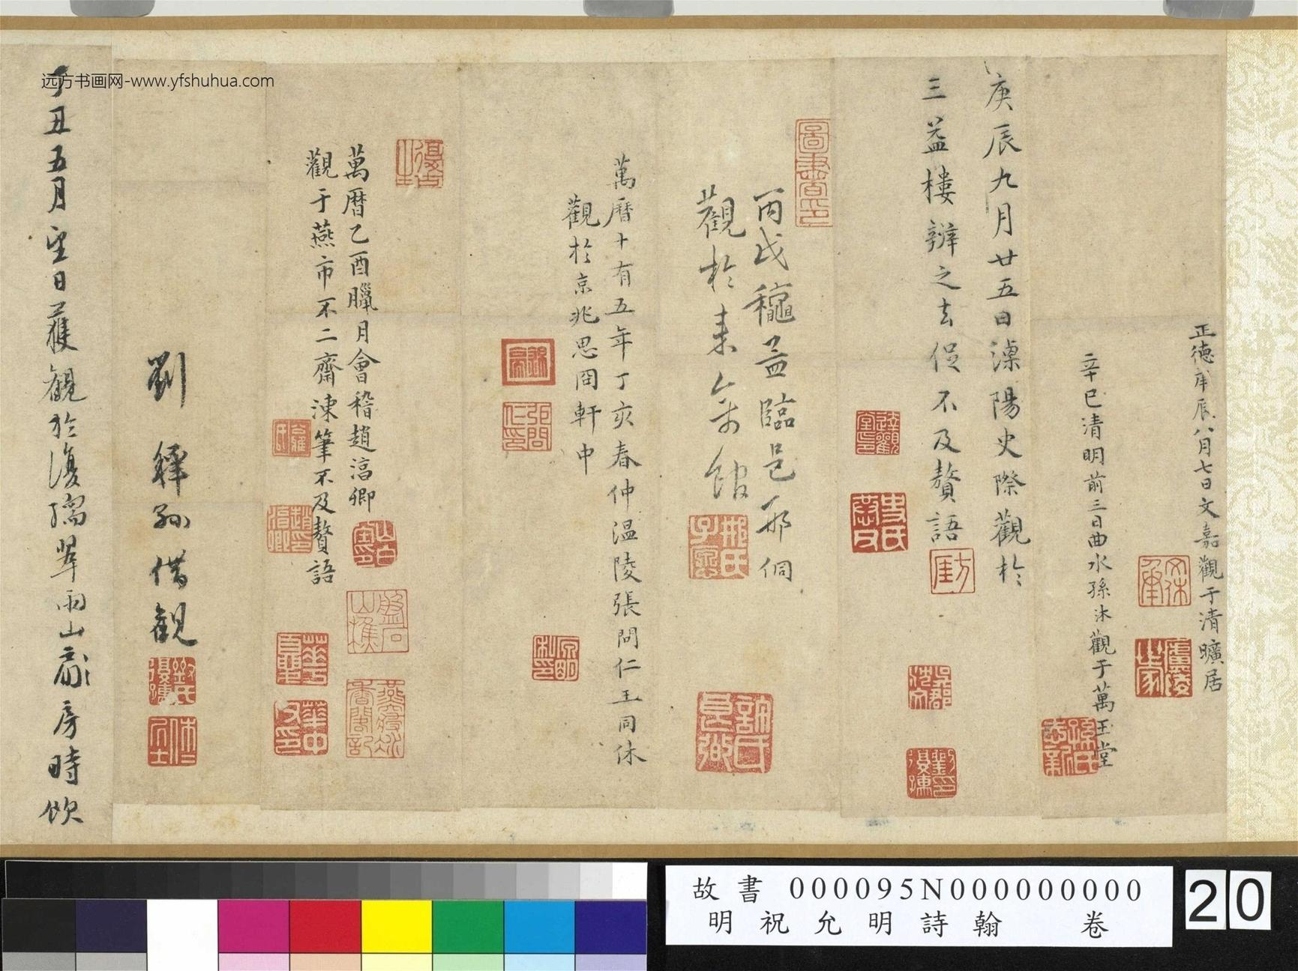 远方书画网-www.yfshuhua.com
正德庚辰八月七日文嘉觀于清曠居
辛巳清明前三日曲水孫沐觀于萬玉堂
庚辰九月廿五日溧陽史際觀於
三益樓辦之去促不及贅語
丙戌穐孟臨邑邢侗
觀於來禽館
萬曆十有五年丁亥春仲温陵張問仁王同休
觀於京兆思問軒中
萬曆乙酉臘月會稽趙淐卿
觀于燕市不二齋凍筆不及贅語
劉繹孫借觀
丑五月望日獲觀於復孺翠雨山房時飲
圖書印
史氏
邢氏子愿
故書 000095N000000000
明祝允明詩翰 卷
20